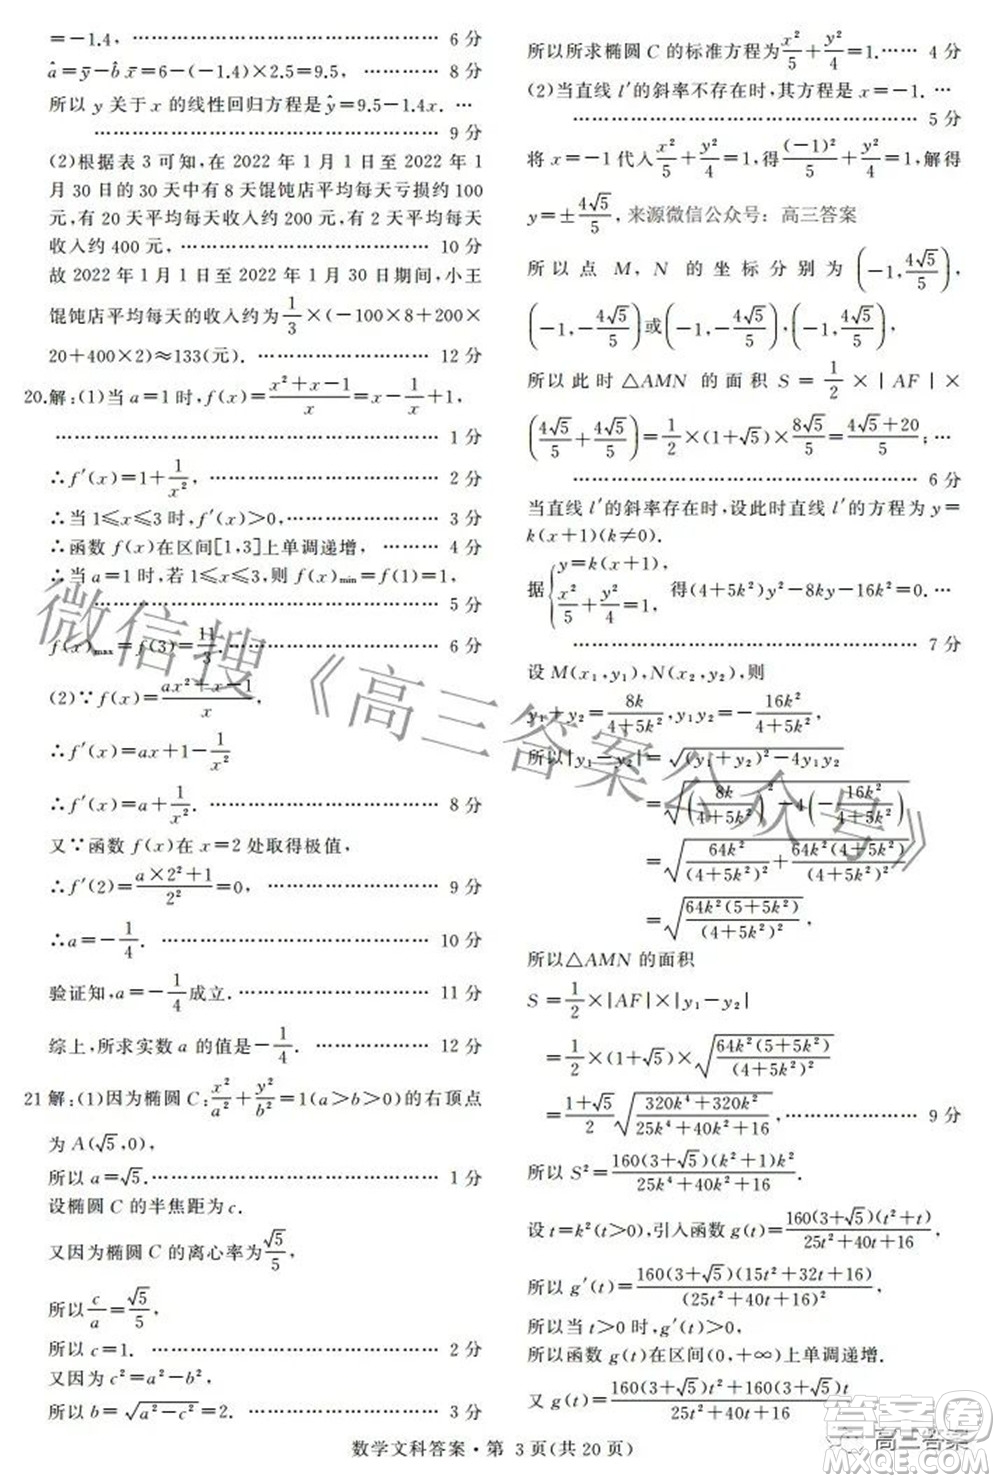 =-1.4, …… 6分
â=ȳ-b̂x̄=6-(-1.4)×2.5=9.5, …… 8分
所以 y 关于 x 的线性回归方程是ŷ=9.5-1.4x. …
…… 9分
(2)根据表 3 可知,在 2022 年 1 月 1 日至 2022 年 1
月 30 日的 30 天中有 8 天馄饨店平均每天亏损约 100
元,有 20 天平均每天收入约 200 元,有 2 天平均每天
收入约 400 元, …… 10分
故 2022 年 1 月 1 日至 2022 年 1 月 30 日期间,小王
馄饨店平均每天的收入约为1/3×(-100×8+200×
20+400×2)≈133(元). …… 12分
20.解:(1)当 a=1 时,f(x)=(x²+x-1)/x=x-1/x+1,
…… 1分
∴f′(x)=1+1/x², …… 2分
∴当 1≤x≤3 时,f′(x)>0, …… 3分
∴函数 f(x)在区间[1,3]上单调递增, …… 4分
∴当 a=1 时,若 1≤x≤3,则 f(x)min=f(1)=1,
…… 5分
f(x)max=f(3)=11/3. …… 6分
(2)∵f(x)=(ax²+x-1)/x,
∴f(x)=ax+1-1/x
∴f′(x)=a+1/x². …… 8分
又∵函数 f(x)在 x=2 处取得极值,
∴f′(2)=(a×2²+1)/2²=0, …… 9分
∴a=-1/4. …… 10分
验证知,a=-1/4成立. …… 11分
综上,所求实数 a 的值是-1/4. …… 12分
21解:(1)因为椭圆 C:x²/a²+y²/b²=1(a>b>0)的右顶点
为 A(√5,0),
所以 a=√5. …… 1分
设椭圆 C 的半焦距为 c.
又因为椭圆 C 的离心率为√5/5,
所以c/a=√5/5,
所以 c=1. …… 2分
又因为 c²=a²-b²,
所以 b=√(a²-c²)=2. …… 3分
所以所求椭圆 C 的标准方程为x²/5+y²/4=1. …… 4分
(2)当直线 l′的斜率不存在时,其方程是 x=-1. …
…… 5分
将 x=-1 代入x²/5+y²/4=1,得(-1)²/5+y²/4=1,解得
y=±4√5/5, 来源微信公众号:高三答案
所以点 M, N 的坐标分别为(-1,4√5/5),
(-1,-4√5/5)或(-1,-4√5/5),(-1,4√5/5),
所以此时△AMN 的面积 S=1/2×|AF|×
(4√5/5+4√5/5)=1/2×(1+√5)×8√5/5=(4√5+20)/5;…
…… 6分
当直线 l′的斜率存在时,设此时直线 l′的方程为 y=
k(x+1)(k≠0).
据{y=k(x+1), x²/5+y²/4=1, 得(4+5k²)y²-8ky-16k²=0. …
…… 7分
设 M(x₁,y₁),N(x₂,y₂),则
y₁+y₂=8k/(4+5k²),y₁y₂=-16k²/(4+5k²),
所以|y₁-y₂|=√((y₁+y₂)²-4y₁y₂)
=√((8k/(4+5k²))²-4(-16k²/(4+5k²)))
=√(64k²/(4+5k²)²+64k²(4+5k²)/(4+5k²)²)
=√(64k²(5+5k²)/(4+5k²)²),
所以△AMN 的面积
S=1/2×|AF|×|y₁-y₂|
=1/2×(1+√5)×√(64k²(5+5k²)/(4+5k²)²)
=(1+√5)/2 √((320k⁴+320k²)/(25k⁴+40k²+16)). …… 9分
所以 S²=160(3+√5)(k²+1)k²/(25k⁴+40k²+16).
设 t=k²(t>0),引入函数 g(t)=160(3+√5)(t²+t)/(25t²+40t+16),
所以 g′(t)=160(3+√5)(15t²+32t+16)/(25t²+40t+16)²,
所以当 t>0 时,g′(t)>0,
所以函数 g(t)在区间(0,+∞)上单调递增.
又 g(t)=(160(3+√5)t²+160(3+√5)t)/(25t²+40t+16)
数学文科答案·第 3 页(共 20 页)
微信搜《高三答案公众号》
高三答案
答案圈